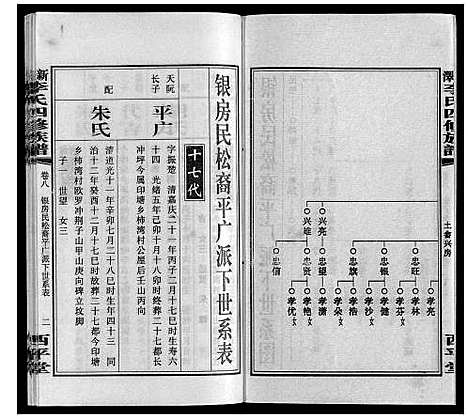 新李氏四修族谱
西平堂
士奇兴房
兴亮
兴雄
忠旺
忠银
忠旗
忠望
忠贤
忠信
孝亮
孝林
孝芬
孝健
孝沙
孝浩
孝朵
孝艳
孝优
银房民松裔平广派下世系表
十七代
天阮
长子
平广
字振楚 清嘉庆二十一年丙子三月十七巳时生寿六
十四 光绪五年己卯十月十八卯时终葬二十七都长
冲坪今属印塘乡柿湾村公屋后壬山丙向
配
朱氏
清道光十一年辛卯七月二十八巳时生年四十三 同
治十二年癸酉十二月十七巳时故葬二十七都今印塘
乡柿湾村欧罗冲荆子山甲山庚向碑立坟脚
子一 世望 女三
新李氏四修族谱
卷八
银房民松裔平广派下世系表
二
西平堂